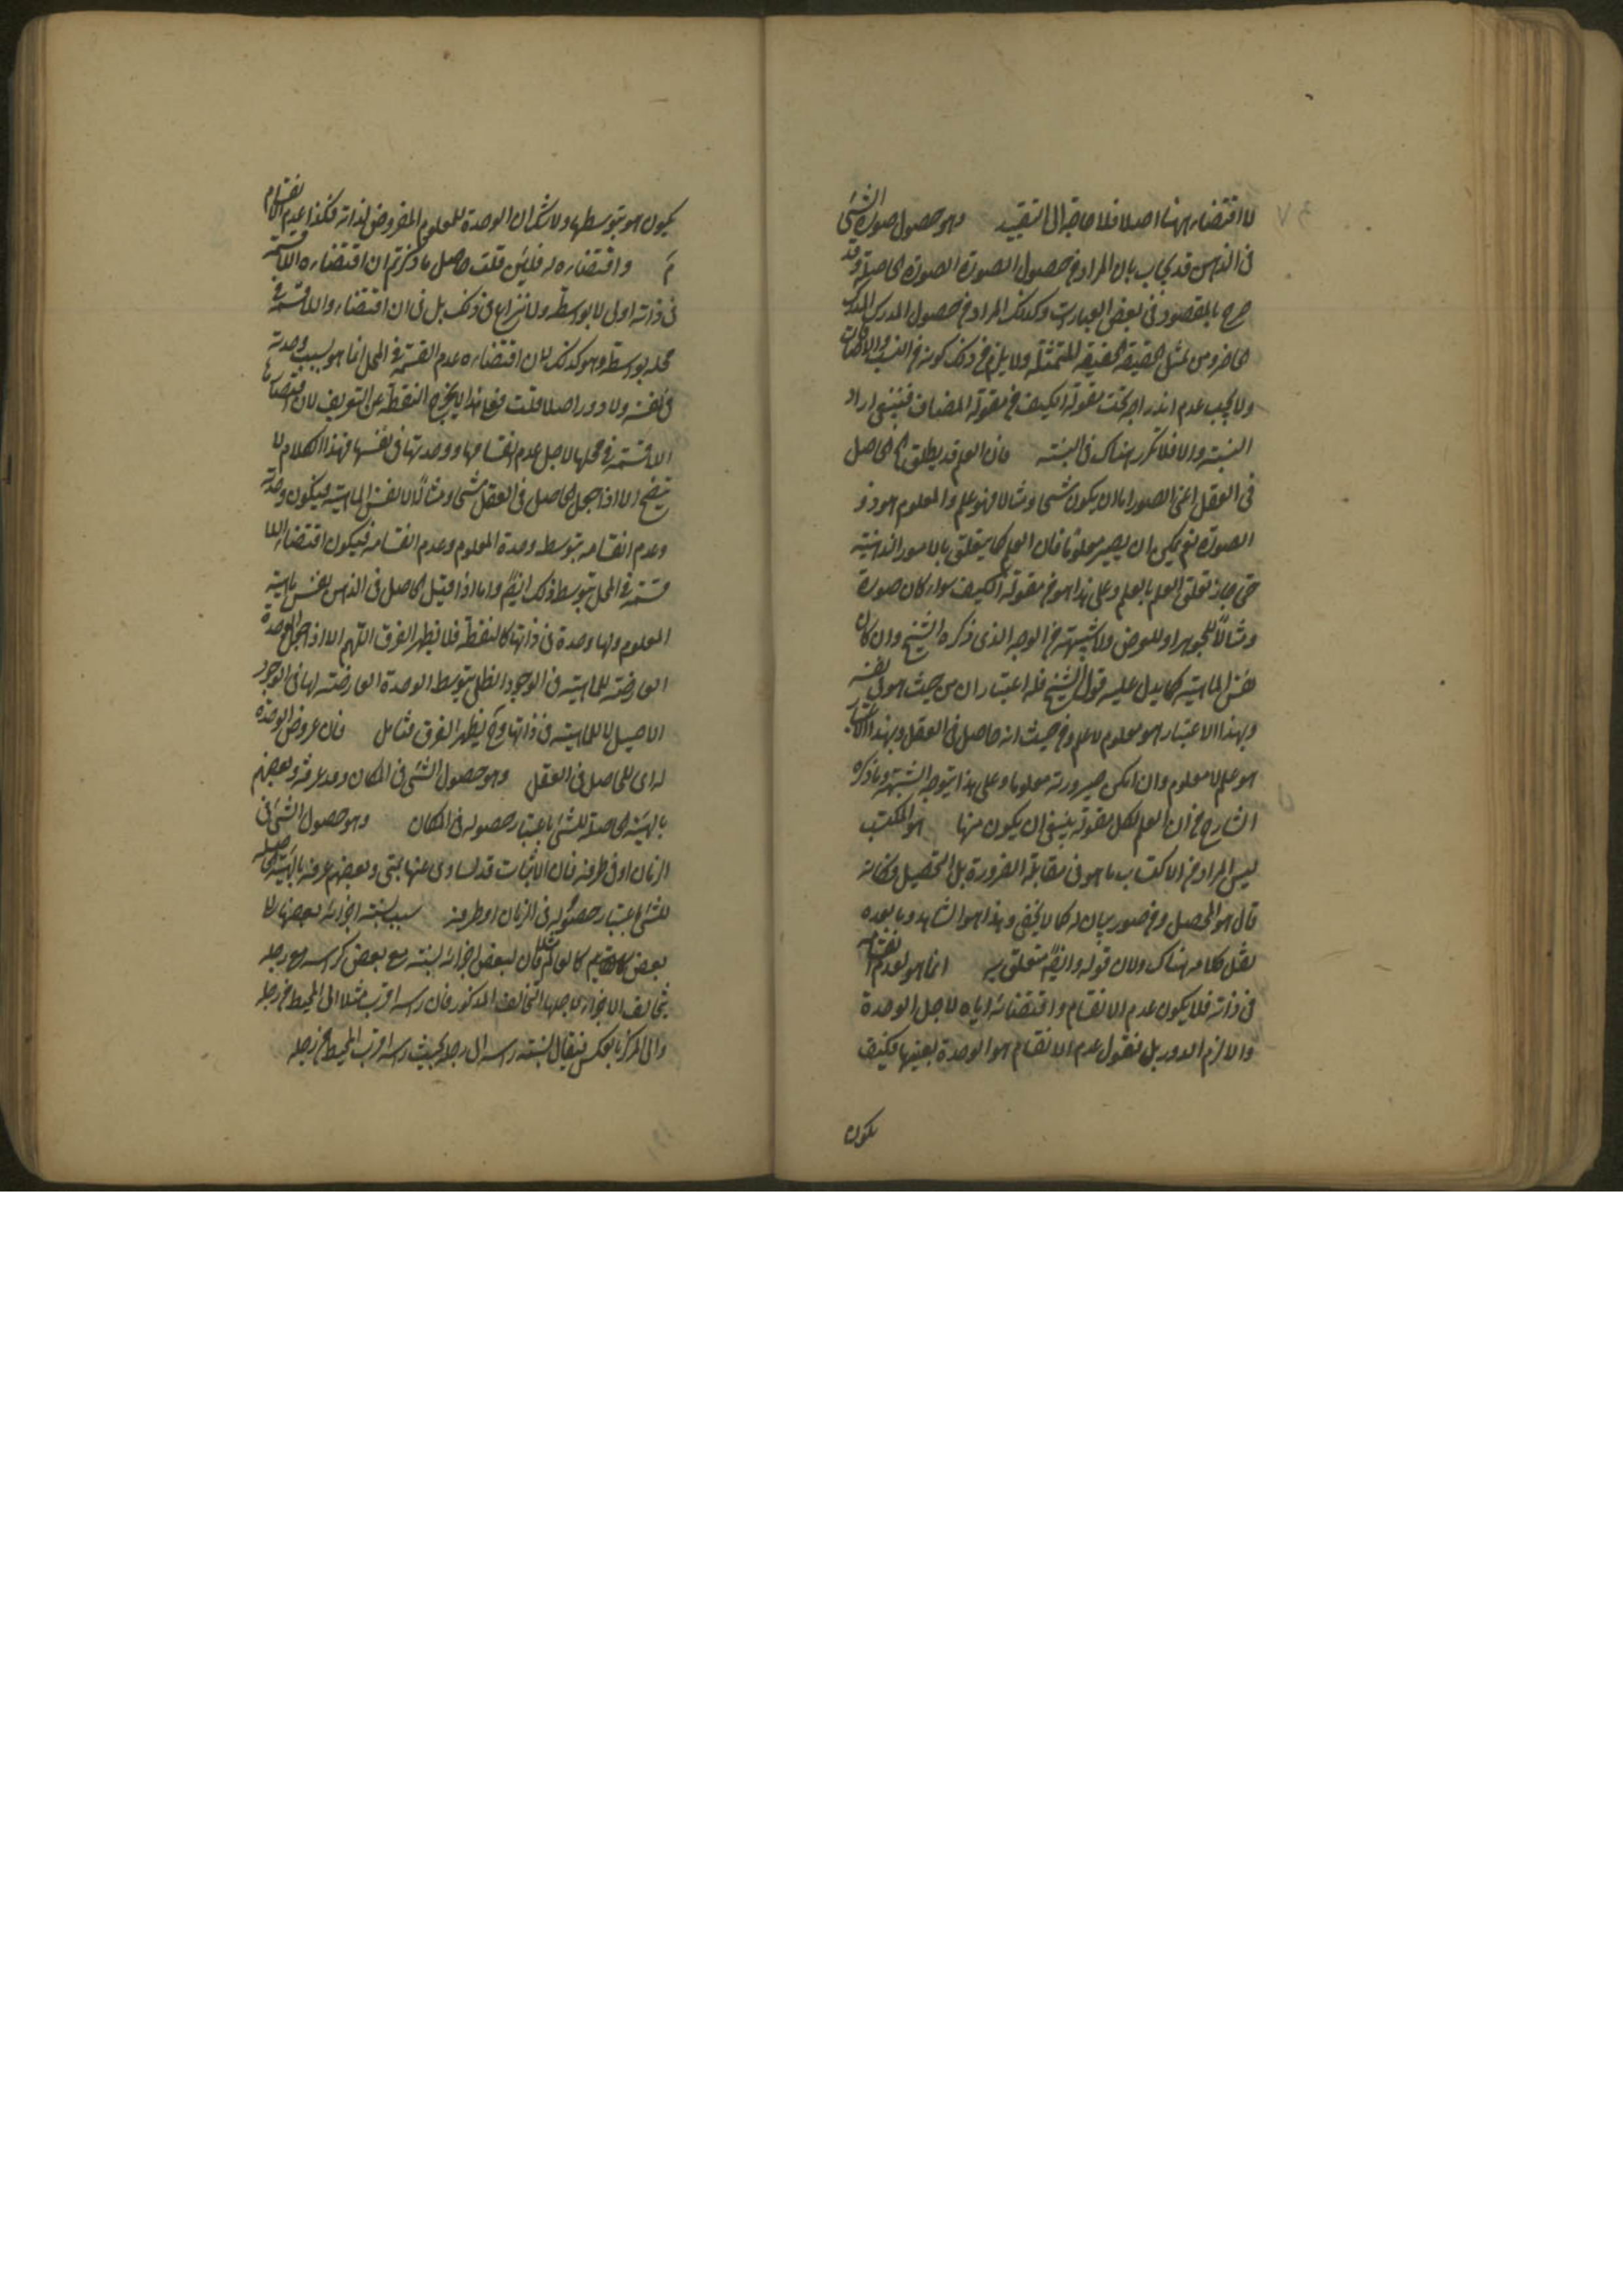 لا اقتضاء ههنا اصلا فلا حاجة الى التقييد وهو حصول صورة الشئ
فى الذهن قد يجاب بان المراد من حصول الصورة الصورة الحاصلة وقد
صرح بالمقصود فى بعض العبارات وكذلك المراد من حصول المدرك المدرك
الحاضر ومن تمثل الحقيقة الحقيقة المتمثلة ولا يلزم من ذلك كونه من النسب والاضافات
ولا يجب عدم اندراجه تحت مقولة الكيف من مقولة المضاف فينبغى ايراد
النسبة والا فلا تكرر هناك فى النسبة فان العلم قد يطلق على الحاصل
فى العقل اعنى الصور اما لان يكون شبحا ومثالا فهو علم والمعلوم هو ذو
الصورة نعم يمكن ان يصير معلوما فان العلم كما يتعلق بالامور الذهنية
حتى جاز تعلق العلم بالعلم وعلى هذا هو من مقولة الكيف سواء كان صورة
ومثالا للجوهر او للعرض ولا شبهة من الوجه الذى ذكره الشيخ وان كان
نفس الماهية كما يدل عليه قول الشيخ فله اعتباران من حيث هو فى نفسه
وبهذا الاعتبار هو معلوم لا علم ومن حيث انه حاصل فى العقل وبهذا الاعتبار
هو علم لا معلوم وان امكن صيرورته معلوما وعلى هذا يتوجه الشبهة وما ذكره
الشارح من ان العلم لكل مقولة ينبغى ان يكون منها هو المكتسب
ليس المراد من الاكتساب ما هو فى مقابلة الضرورة بل التحصيل فكانه
قال هو المحصل وفى صور بيان له كما لا يخفى وهذا هو الشاهد وما بعده
نقل كلامه هناك ولان قوله وايضا متعلق به انما هو لعدم انقسامه
فى ذاته فلا يكون عدم الانقسام واقتضائه اياه لاجل الوحدة
والا لزم الدور بل نقول عدم الانقسام هو الوحدة بعينها فكيف
يكون
يكون هو بتوسطها ولا شك ان الوحدة للمعلوم المفروض لذاته فكذا عدم الانقسام
واقتضاءه له فلئن قلت حاصل ما ذكرتم ان اقتضاءه اللاقسمة
فى ذاته اولى لا بواسطة ولا نزاع فى ذلك بل فى ان اقتضاءه اللاقسمة فى
محله بواسطة وهو كذلك لان اقتضاءه عدم القسمة فى المحل انما هو بسبب وحدته
فى نفسه ولا دور اصلا قلت فعلى هذا لا يخرج النقطة عن التعريف لان اقتضاءها
اللاقسمة فى محلها لاجل عدم انقسامها ووحدتها فى نفسها فهذا الكلام لا
يتضح الا اذا جعل الحاصل فى العقل شبحا ومثالا لا نفس الماهية فيكون وحدته
وعدم انقسامه بتوسط وحدة المعلوم وعدم انقسامه فيكون اقتضاء اللا
قسمة فى المحل بتوسط ذلك ايضا واما اذا قيل الحاصل فى الذهن نفس ماهية
المعلوم ولها وحدة فى ذاتها كالنقطة فلا يظهر الفرق اللهم الا اذا جعل الوحدة
العارضة للماهية فى الوجود الظلى بتوسط الوحدة العارضة لها فى الوجود
الاصيل لا للماهية فى ذاتها وح يظهر الفرق فتأمل فان عروض الوحدة
له اى للحاصل فى العقل وهو حصول الشئ فى المكان وقد عرفه بعضهم
بالهيئة الحاصلة للشئ باعتبار حصوله فى المكان وهو حصول الشئ فى
الزمان او فى طرفه فان الانيات قد يسأل عنها بمتى وبعضهم عرفه بالهيئة الحاصلة
للشئ باعتبار حصوله فى الزمان او طرفه بسبب نسبة اجزائه بعضها الى
بعض كالقائم فان لبعض اجزائه نسبة مع بعض كرأسه مع رجله
تخالف الاجزاء لاجلها التخالف المذكور فان رأسه اقرب مثلا الى المحيط من رجله
والى المركز بالعكس فيقال نسبة رأسه الى رجله بحيث رأسه اقرب المحيط من رجله